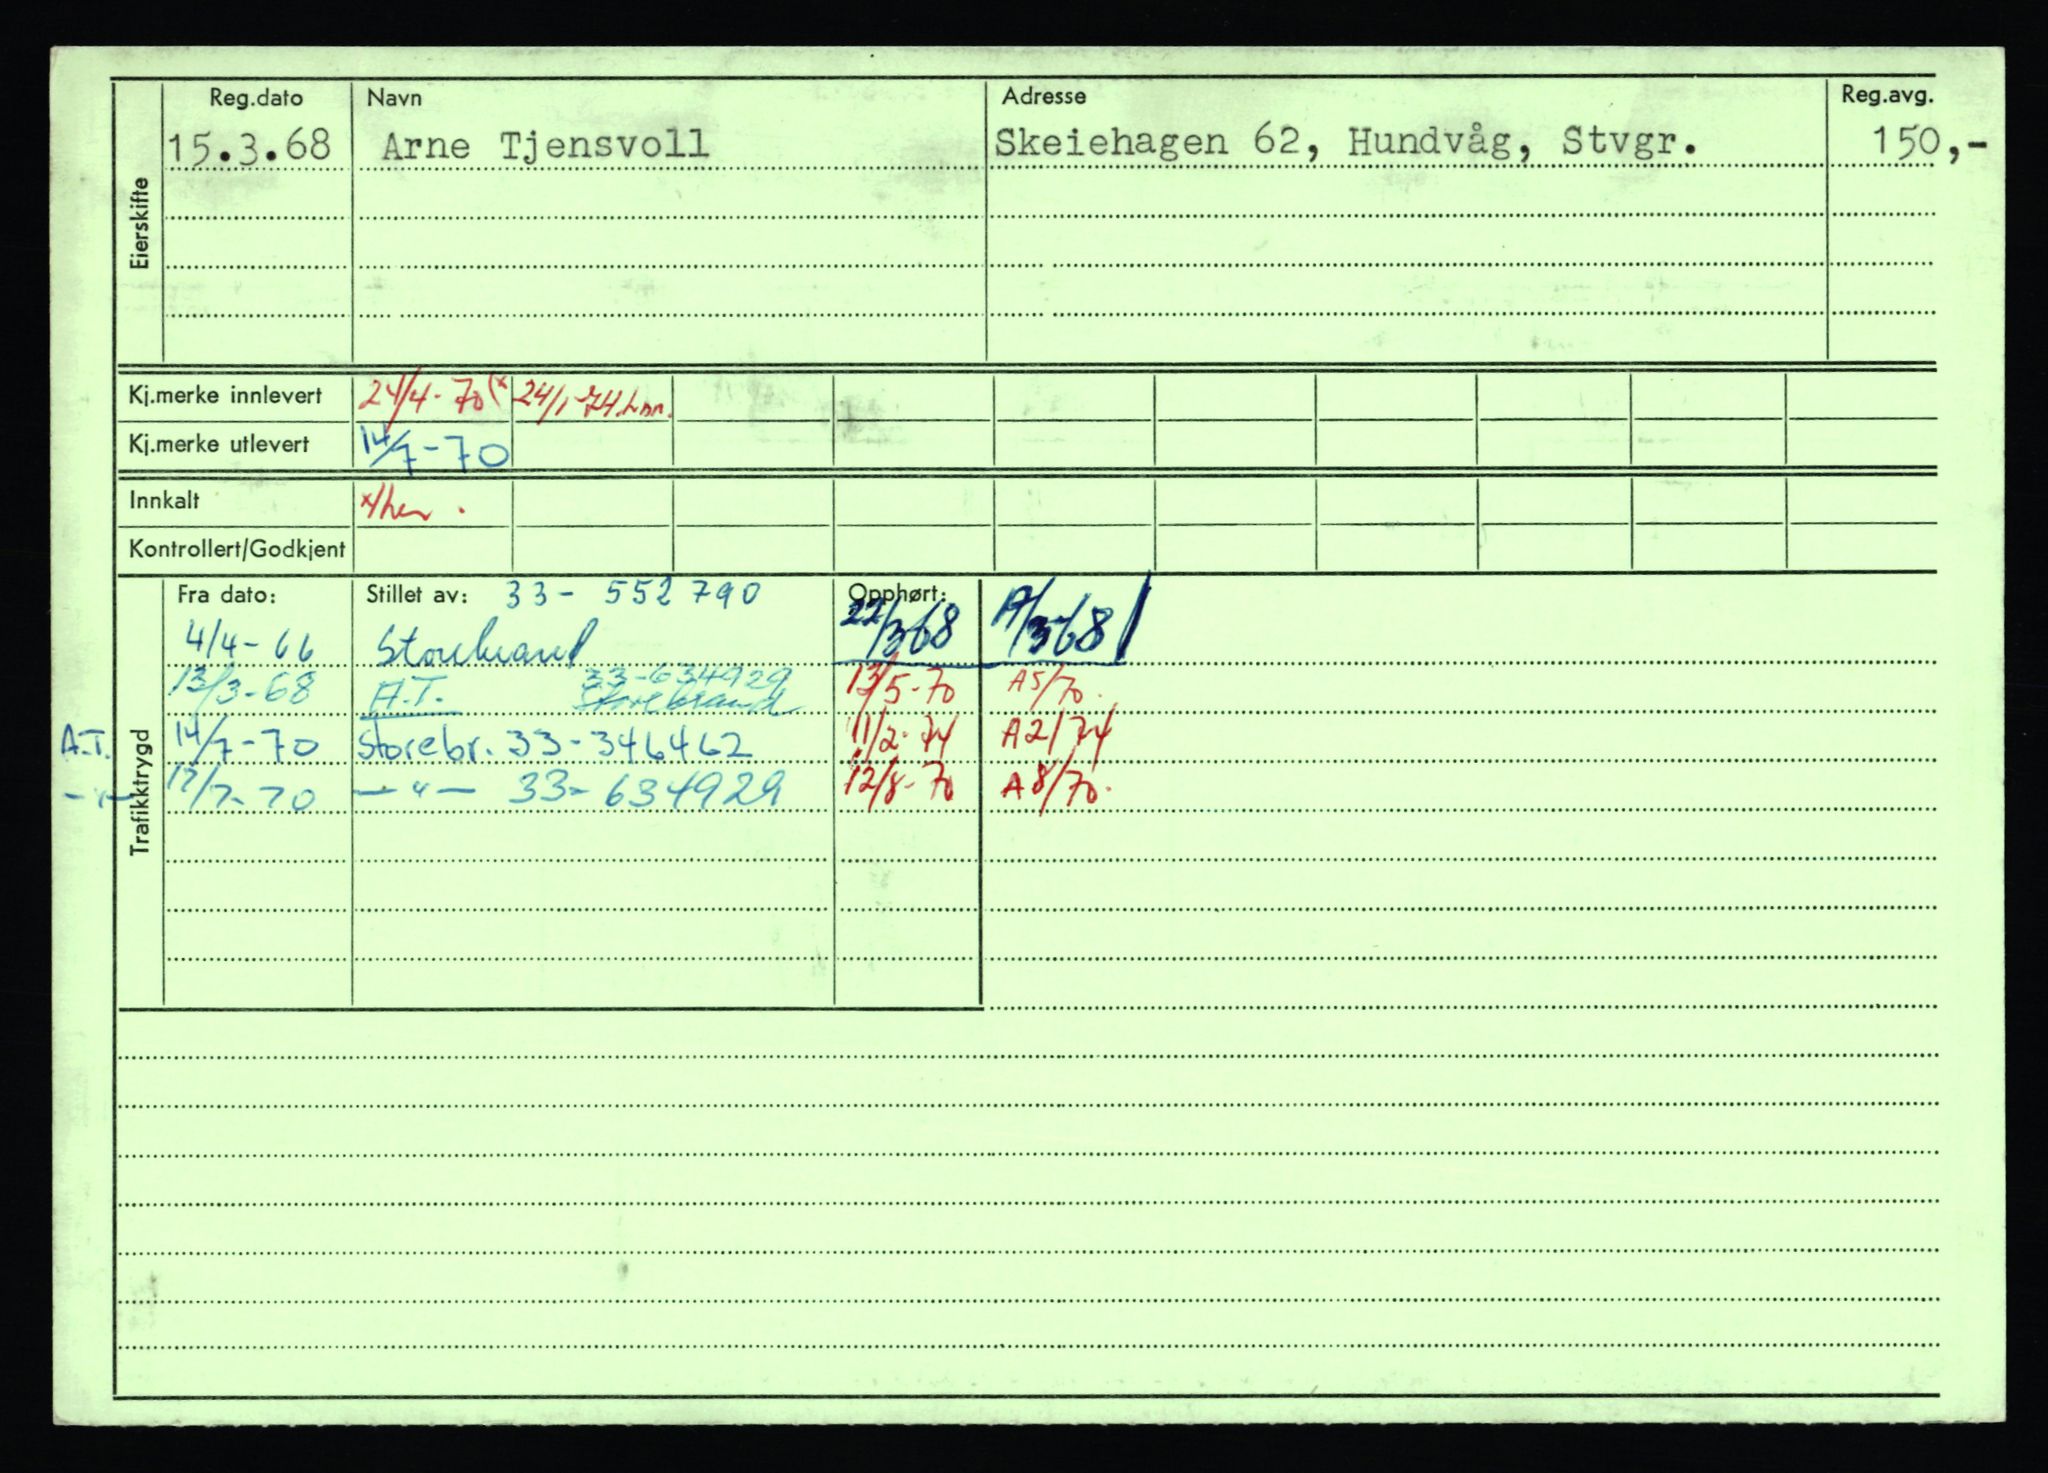 Reg.dato Navn Adresse Reg.avg.
Eierskifte
15.3.68 Arne Tjensvoll Skeiehagen 62, Hundvåg, Stvgr. 150,-
Kj.merke innlevert 24/4-70 (x 24/1-74
Kj.merke utlevert 14/7-70
Innkalt
Kontrollert/Godkjent
Trafikktrygd
Fra dato: Stillet av: 33- 552790 Opphørt:
4/4-66 Storebrand 22/3 68 A/3-68
13/3-68 A.T. 33-634929 Storebrand 13/5-70 A5/70.
A.T. 14/7-70 Storebr. 33-346462 11/2-74 A2/74
-"- 17/7-70 -"- 33-634929 12/8-70 A8/70.